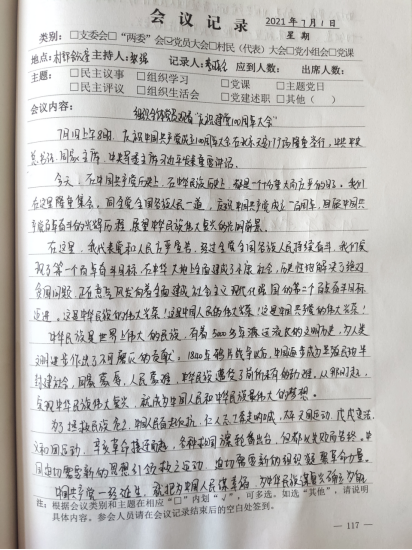 会议记录 2021年7月1日
星期
类别：□支委会□“两委”会☑党员大会□村民（代表）大会□党小组会□党课
地点：村部会议室 主持人： 记录人： 应到人数： 出席人数：
主题：□民主议事 □组织学习 □党课 □主题党日
□民主评议 □组织生活会 □党建述职 □其他（ ）
会议内容：
组织全体党员观看“庆祝建党100周年大会”
7月1日上午8时，庆祝中国共产党成立100周年大会在北京天安门广场隆重举行，中共中央
总书记、国家主席、中央军委主席习近平发表重要讲话。
今天，在中国共产党历史上，在中华民族历史上，都是一个十分重大而庄严的日子。我们
在这里隆重集会，同全党全国各族人民一道，庆祝中国共产党成立一百周年，回顾中国共
产党百年奋斗的光辉历程，展望中华民族伟大复兴的光明前景。
在这里，我代表党和人民庄严宣告，经过全党全国各族人民持续奋斗，我们实
现了第一个百年奋斗目标，在中华大地上全面建成了小康社会，历史性地解决了绝对
贫困问题，正在意气风发向着全面建成社会主义现代化强国的第二个百年奋斗目标
迈进。这是中华民族的伟大光荣！这是中国人民的伟大光荣！这是中国共产党的伟大光荣！
中华民族是世界上伟大的民族，有着5000多年源远流长的文明历史，为人类
文明进步作出了不可磨灭的贡献。1840年鸦片战争以后，中国逐步成为半殖民地半
封建社会，国家蒙辱、人民蒙难，中华民族遭受了前所未有的劫难。从那时起，
实现中华民族伟大复兴，就成为中国人民和中华民族最伟大的梦想。
为了拯救民族危亡，中国人民奋起反抗，仁人志士奔走呐喊，太平天国运动、戊戌变法、
义和团运动、辛亥革命接连而起，各种救国方案轮番出台，但都以失败而告终。中
国迫切需要新的思想引领救亡运动，迫切需要新的组织凝聚革命力量。
中国共产党一经诞生，就把为中国人民谋幸福、为中华民族谋复兴确立为
注：根据会议类别和主题在相应“□”内划“√”，可多选。如选“其他”，请说明
具体内容。参会人员请在会议记录结束后的空白处签到。
— 117 —